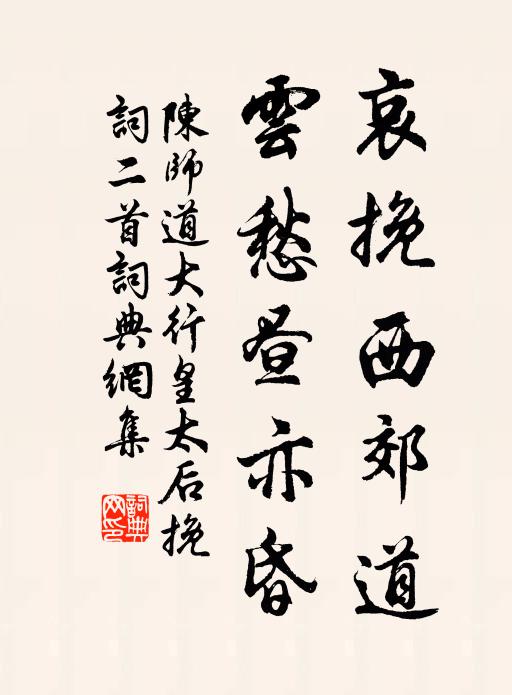 哀挽西郊道
雲愁昼亦昏
陳師道大行皇太后挽
詞二首詞典網集
詞典網印